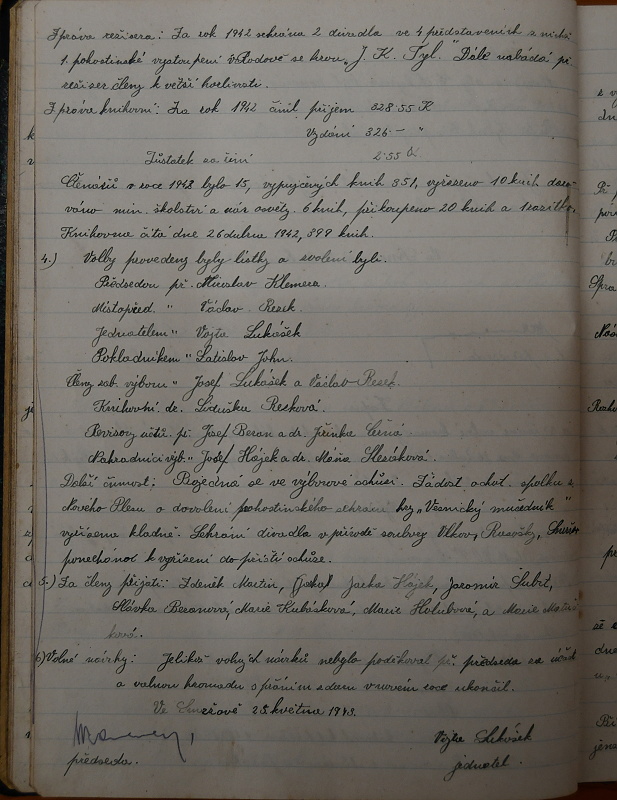 Zpráva režisera: Za rok 1942 sehrána 2 divadla ve 4 představeních z nichž
1. pohostinské vystoupení v Rodově se hrou „J. K. Tyl." Dále nabádá př.
režiser členy k větší horlivosti.
Zpráva knihovní: Za rok 1942 činil příjem 328·55 K
Vydání 326·— "
Zůstatek za činí 2·55 K
Čtenářů v roce 1942 bylo 15, vypujčených knih 851, vyřazeno 10 knih daro-
váno min. školství a nár. osvěty. 6 knih, přikoupeno 20 knih a 1 razítko.
Knihovna čítá dne 26 dubna 1942, 399 knih.
4.) Volby provedeny byly lístky a zvoleni byli.
Předsedou př. Miroslav Klemera.
Místopřed. " Václav Resek
Jednatelem " Vojta Lukášek
Pokladníkem " Latislav John.
Členy zab. výboru " Josef Lukášek a Václav Resek.
Knihovní dr. Liduška Resková.
Revisory účtů př. Josef Beran a dr. Jřinka Černá
Nahradníci výb. " Josef Hájek a dr. Máňa Slezáková.
Další činnost: Pojedná se ve výborové schůzi. Žádost ochot. spolku z
Nového Plesu o dovolení pohostinského sehrání hry „Vesnický mučedník"
vyřízena kladně. Sehrání divadla v přírodě soubory Vlkov, Rasošky,
ponecháno k vyřízení do příští schůze.
5.) Za členy přijati: Zdeněk Martin, Jarka Hájek, Jaromír Šubrt,
Slávka Beranová, Marie Kubásková, Marie Holubová, a Marie
ková.
6) Volné návrhy: Jelikož volných návrhů nebylo poděkoval př. předseda za účast
a valnou hromadu s přáním zdaru v novém roce ukončil.
Ve Smržově 25. května 1943.
Vojta Lukášek
předseda. jednatel.